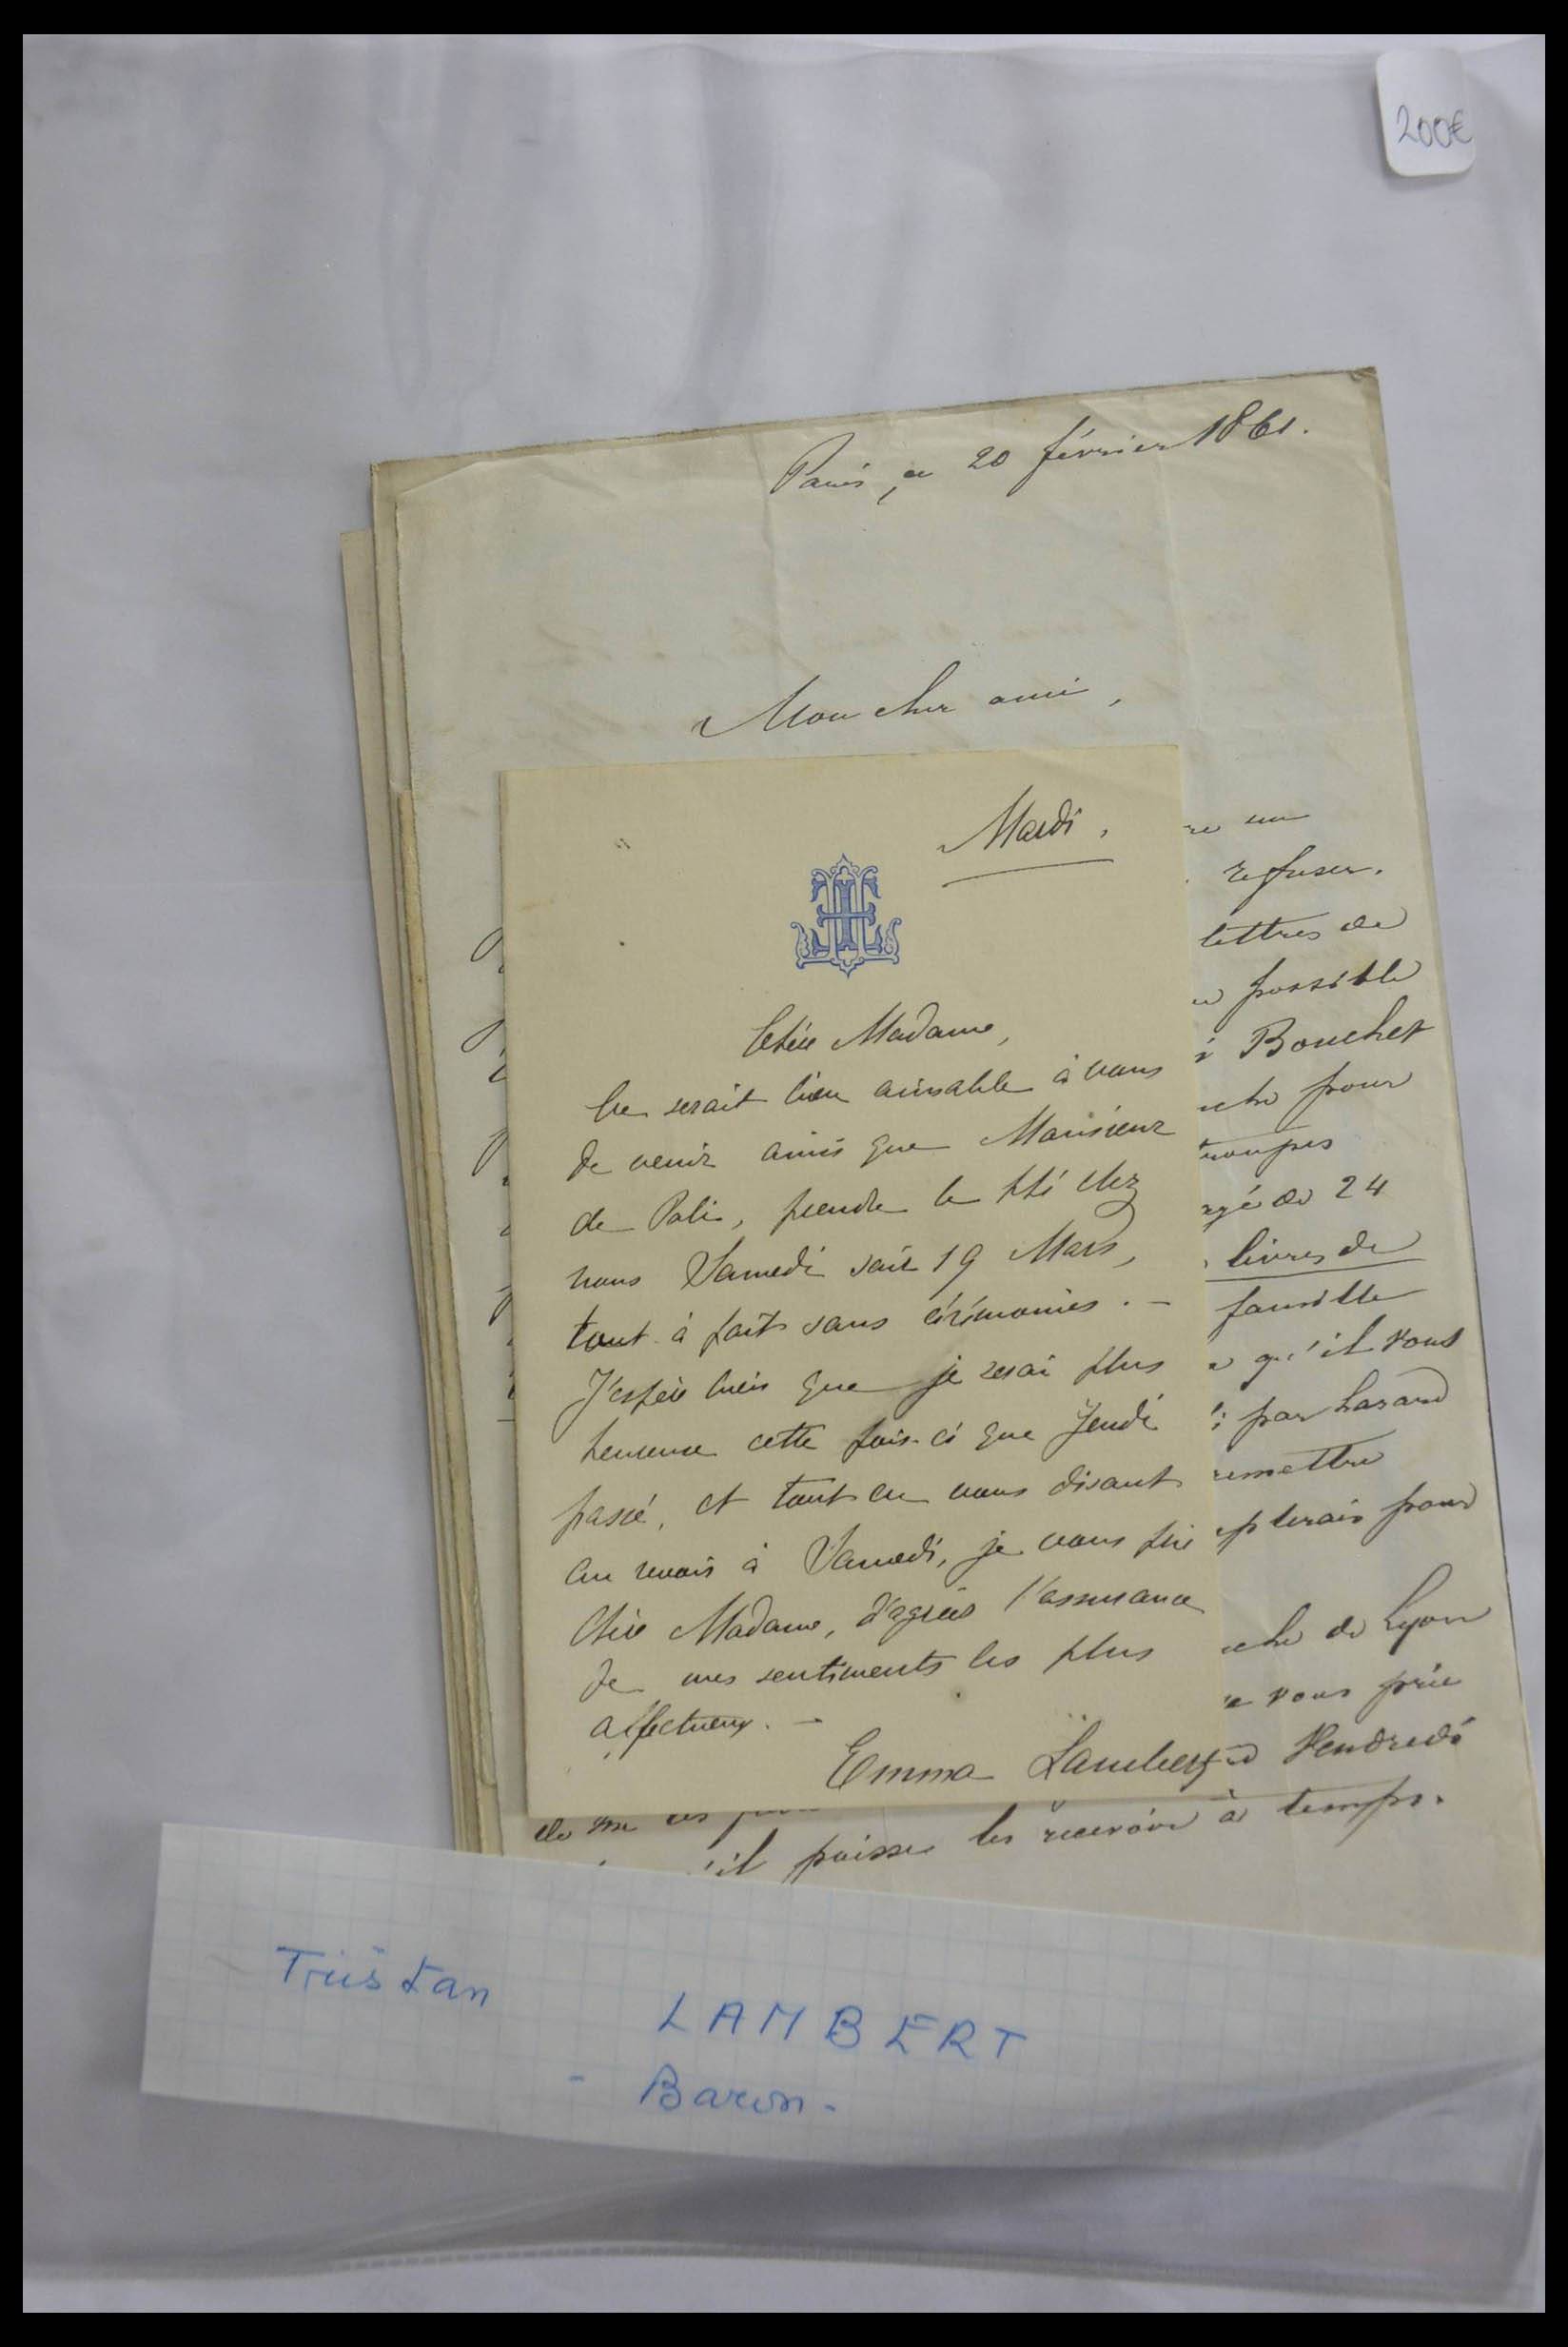 200€
Paris, ce 20 février 1861.
Mon cher ami,
Mardi,
Chère Madame,
Ce serait bien aimable à vous
de venir ainsi que Monsieur
de Poli, prendre le thé chez
nous Samedi soir 19 Mars,
tout à fait sans cérémonies. -
J'espère bien que je serai plus
heureuse cette fois-ci que Jeudi
passé, et tout en vous disant
au revoir à Samedi, je vous prie
Chère Madame, d'agréer l'assurance
de mes sentiments les plus
affectueux. -
Emma Lambert
un
refuser.
lettres de
possible
Bouchet
pour
troupes
de 24
livres de
famille
qu'il vous
par hasard
remettre
pour
de Lyon
vous prie
Vendredi
puisse les recevoir à temps.
Tristan
LAMBERT
- Baron -